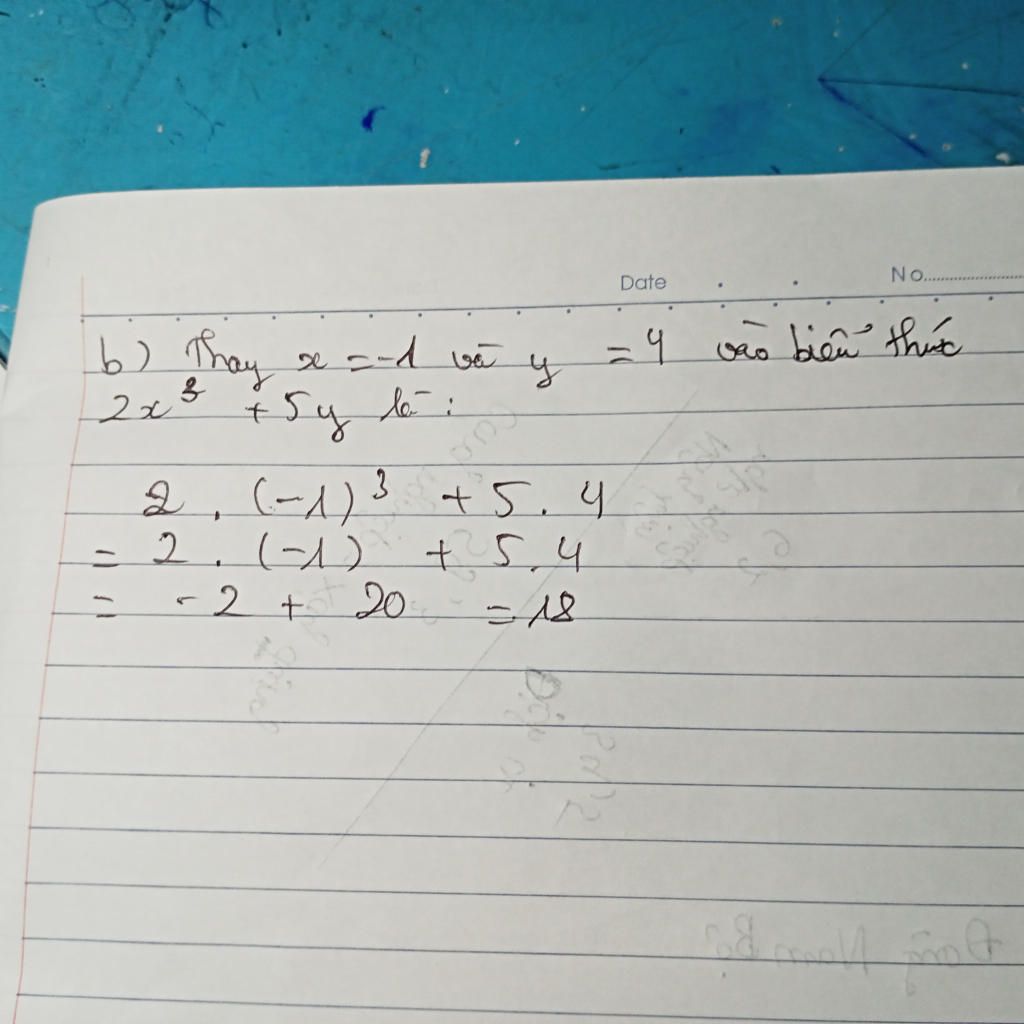 Date . . No..........
b) Thay x = -1 và y = 4 vào biểu thức
2x³ + 5y là :
2 . (-1)³ + 5 . 4
= 2 . (-1) + 5 . 4
= -2 + 20 = 18
Đông Nam Bộ